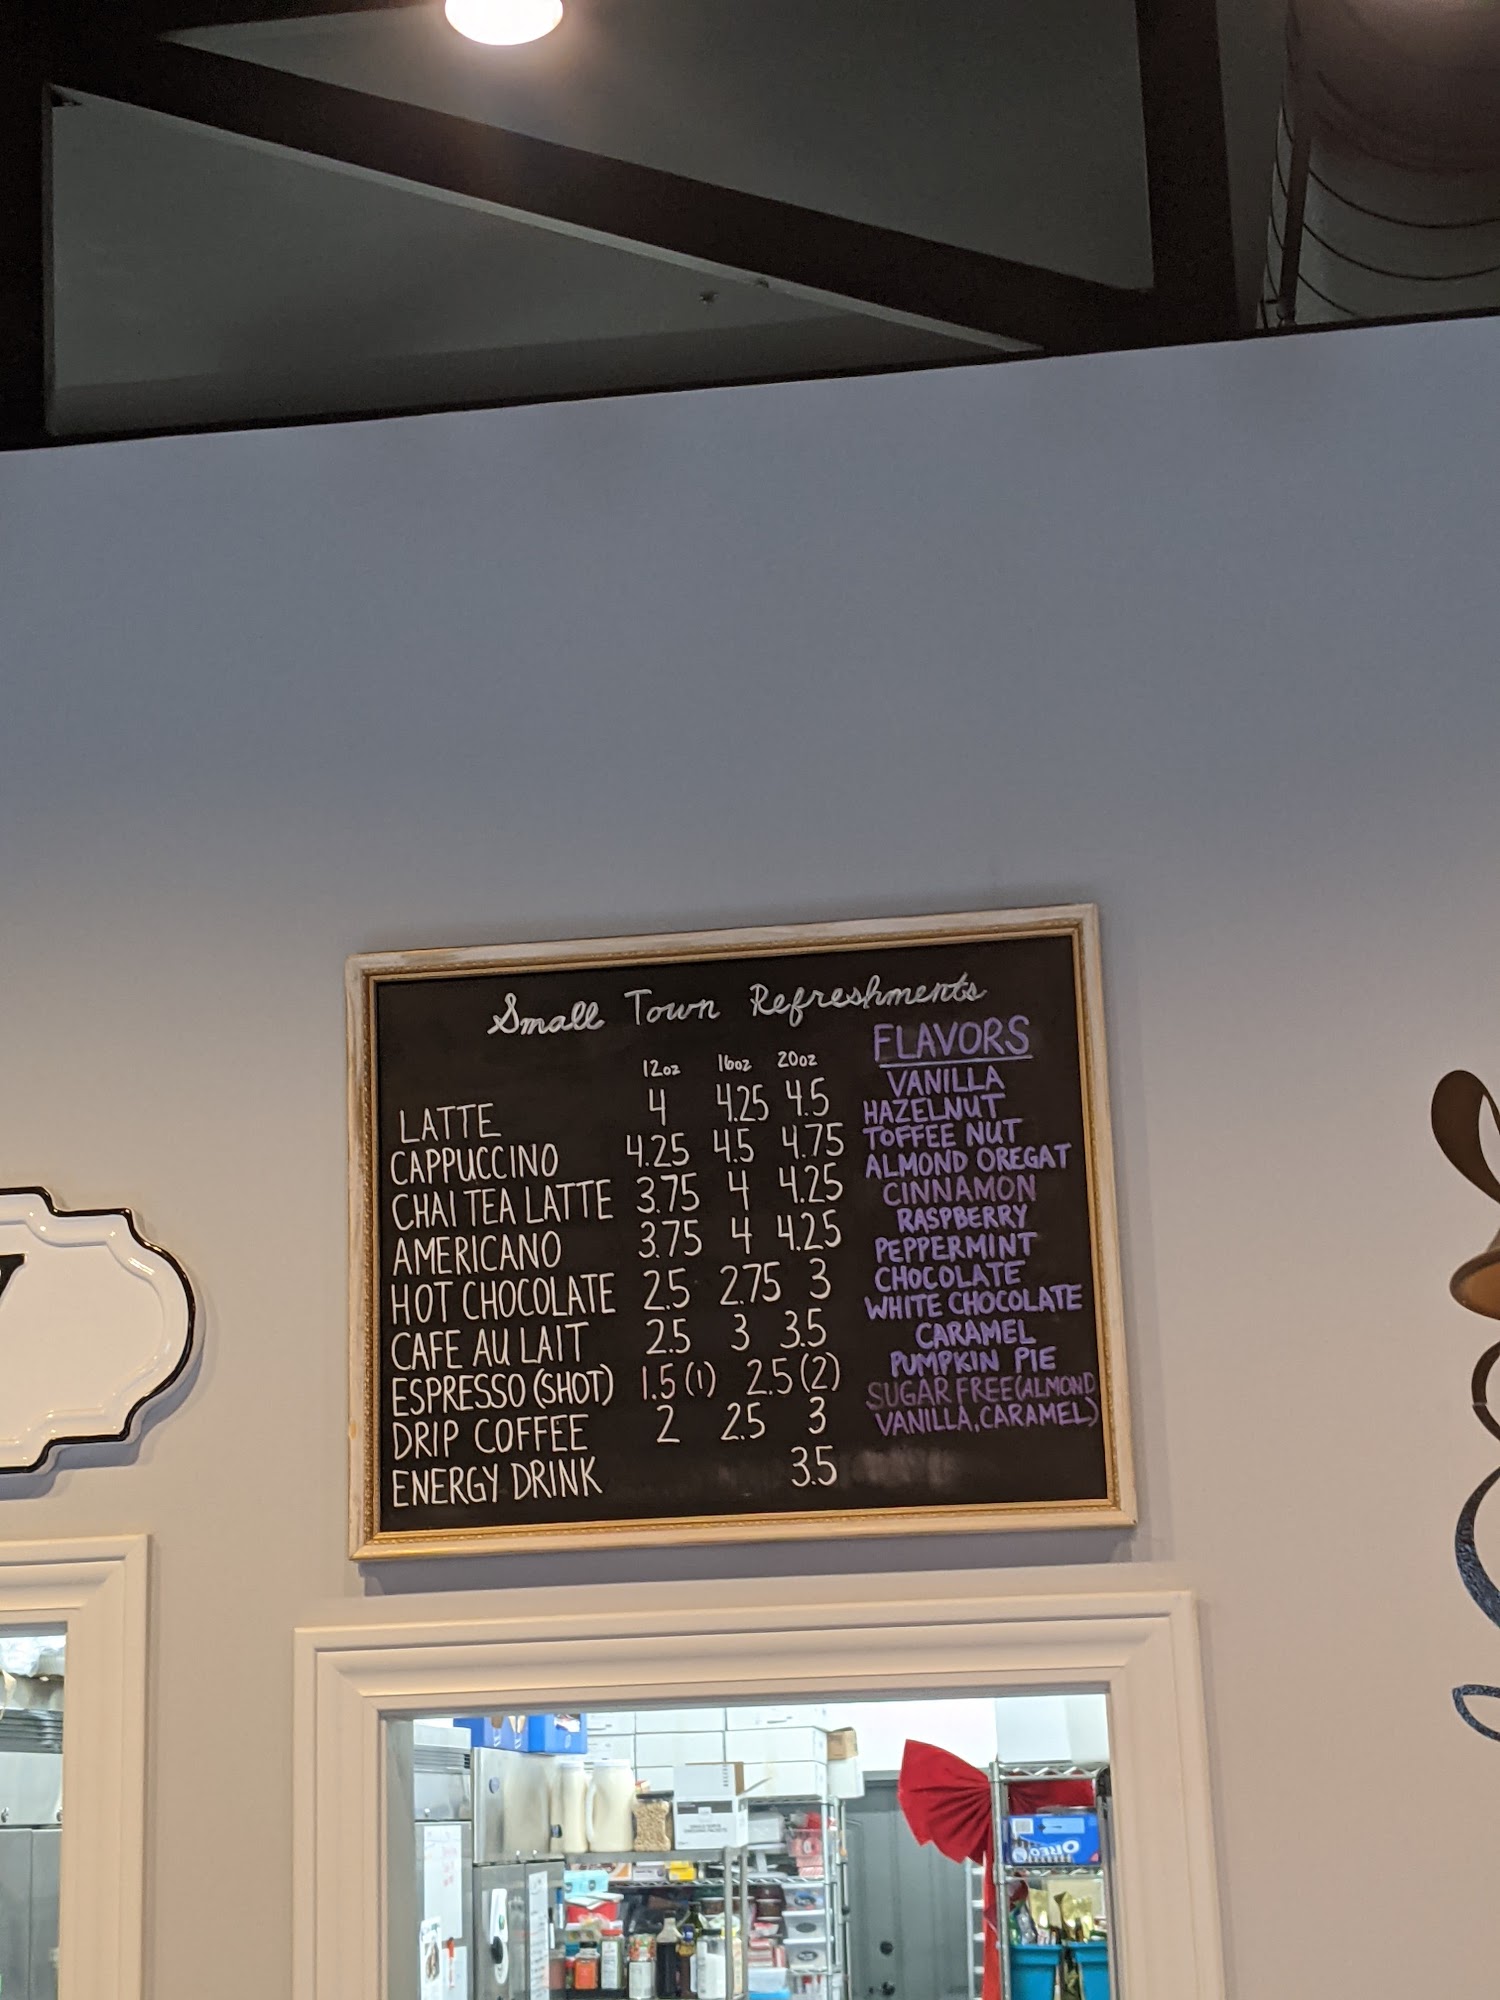 Small Town Refreshments
12oz 16oz 20oz
LATTE 4 4.25 4.5
CAPPUCCINO 4.25 4.5 4.75
CHAI TEA LATTE 3.75 4 4.25
AMERICANO 3.75 4 4.25
HOT CHOCOLATE 2.5 2.75 3
CAFE AU LAIT 2.5 3 3.5
ESPRESSO (SHOT) 1.5 (1) 2.5 (2)
DRIP COFFEE 2 2.5 3
ENERGY DRINK 3.5
FLAVORS
VANILLA
HAZELNUT
TOFFEE NUT
ALMOND OREGAT
CINNAMON
RASPBERRY
PEPPERMINT
CHOCOLATE
WHITE CHOCOLATE
CARAMEL
PUMPKIN PIE
SUGAR FREE (ALMOND
VANILLA, CARAMEL)
OREO